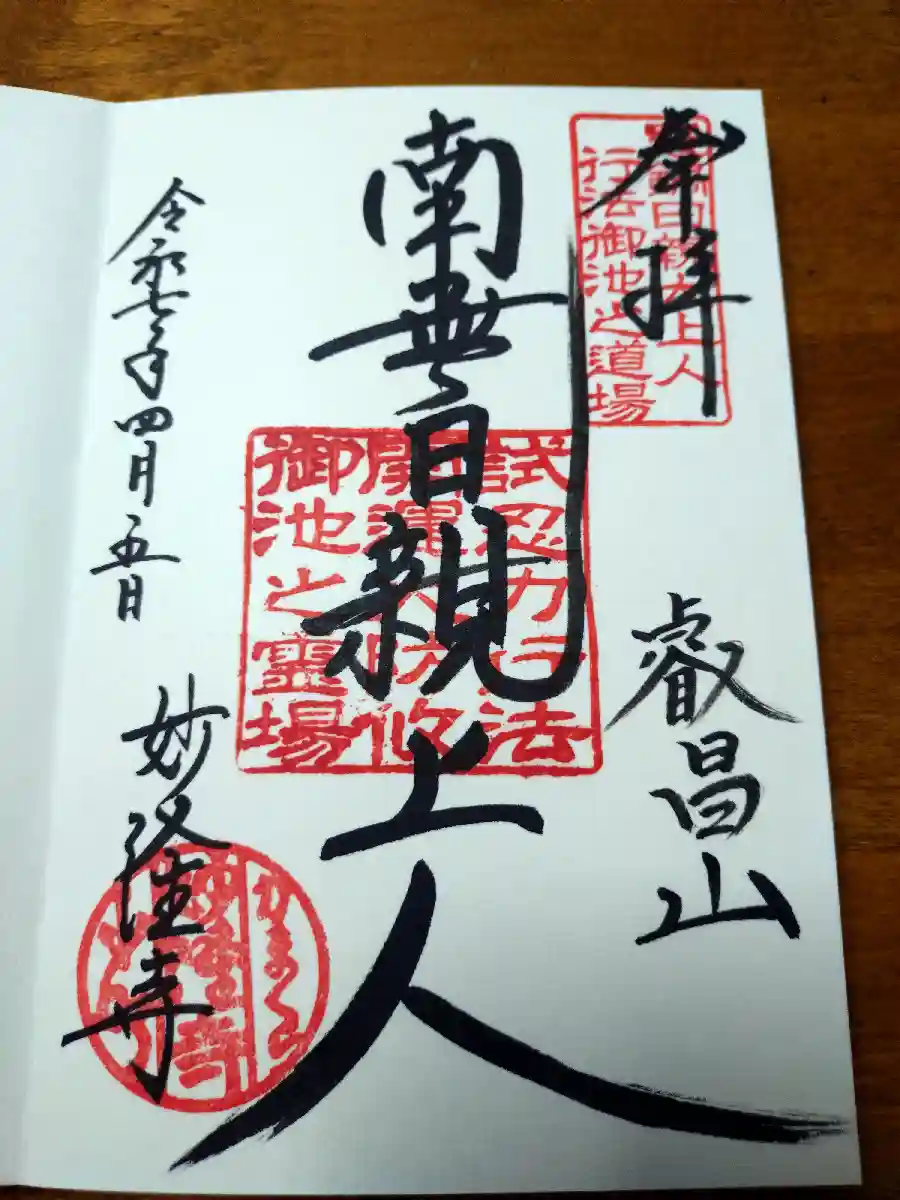 奉拝
日親大上人
行法御池之道場
叡昌山
南無日親上人
試忍力行法
開運
御池之霊場
令和七年四月五日
妙隆寺
かまくら